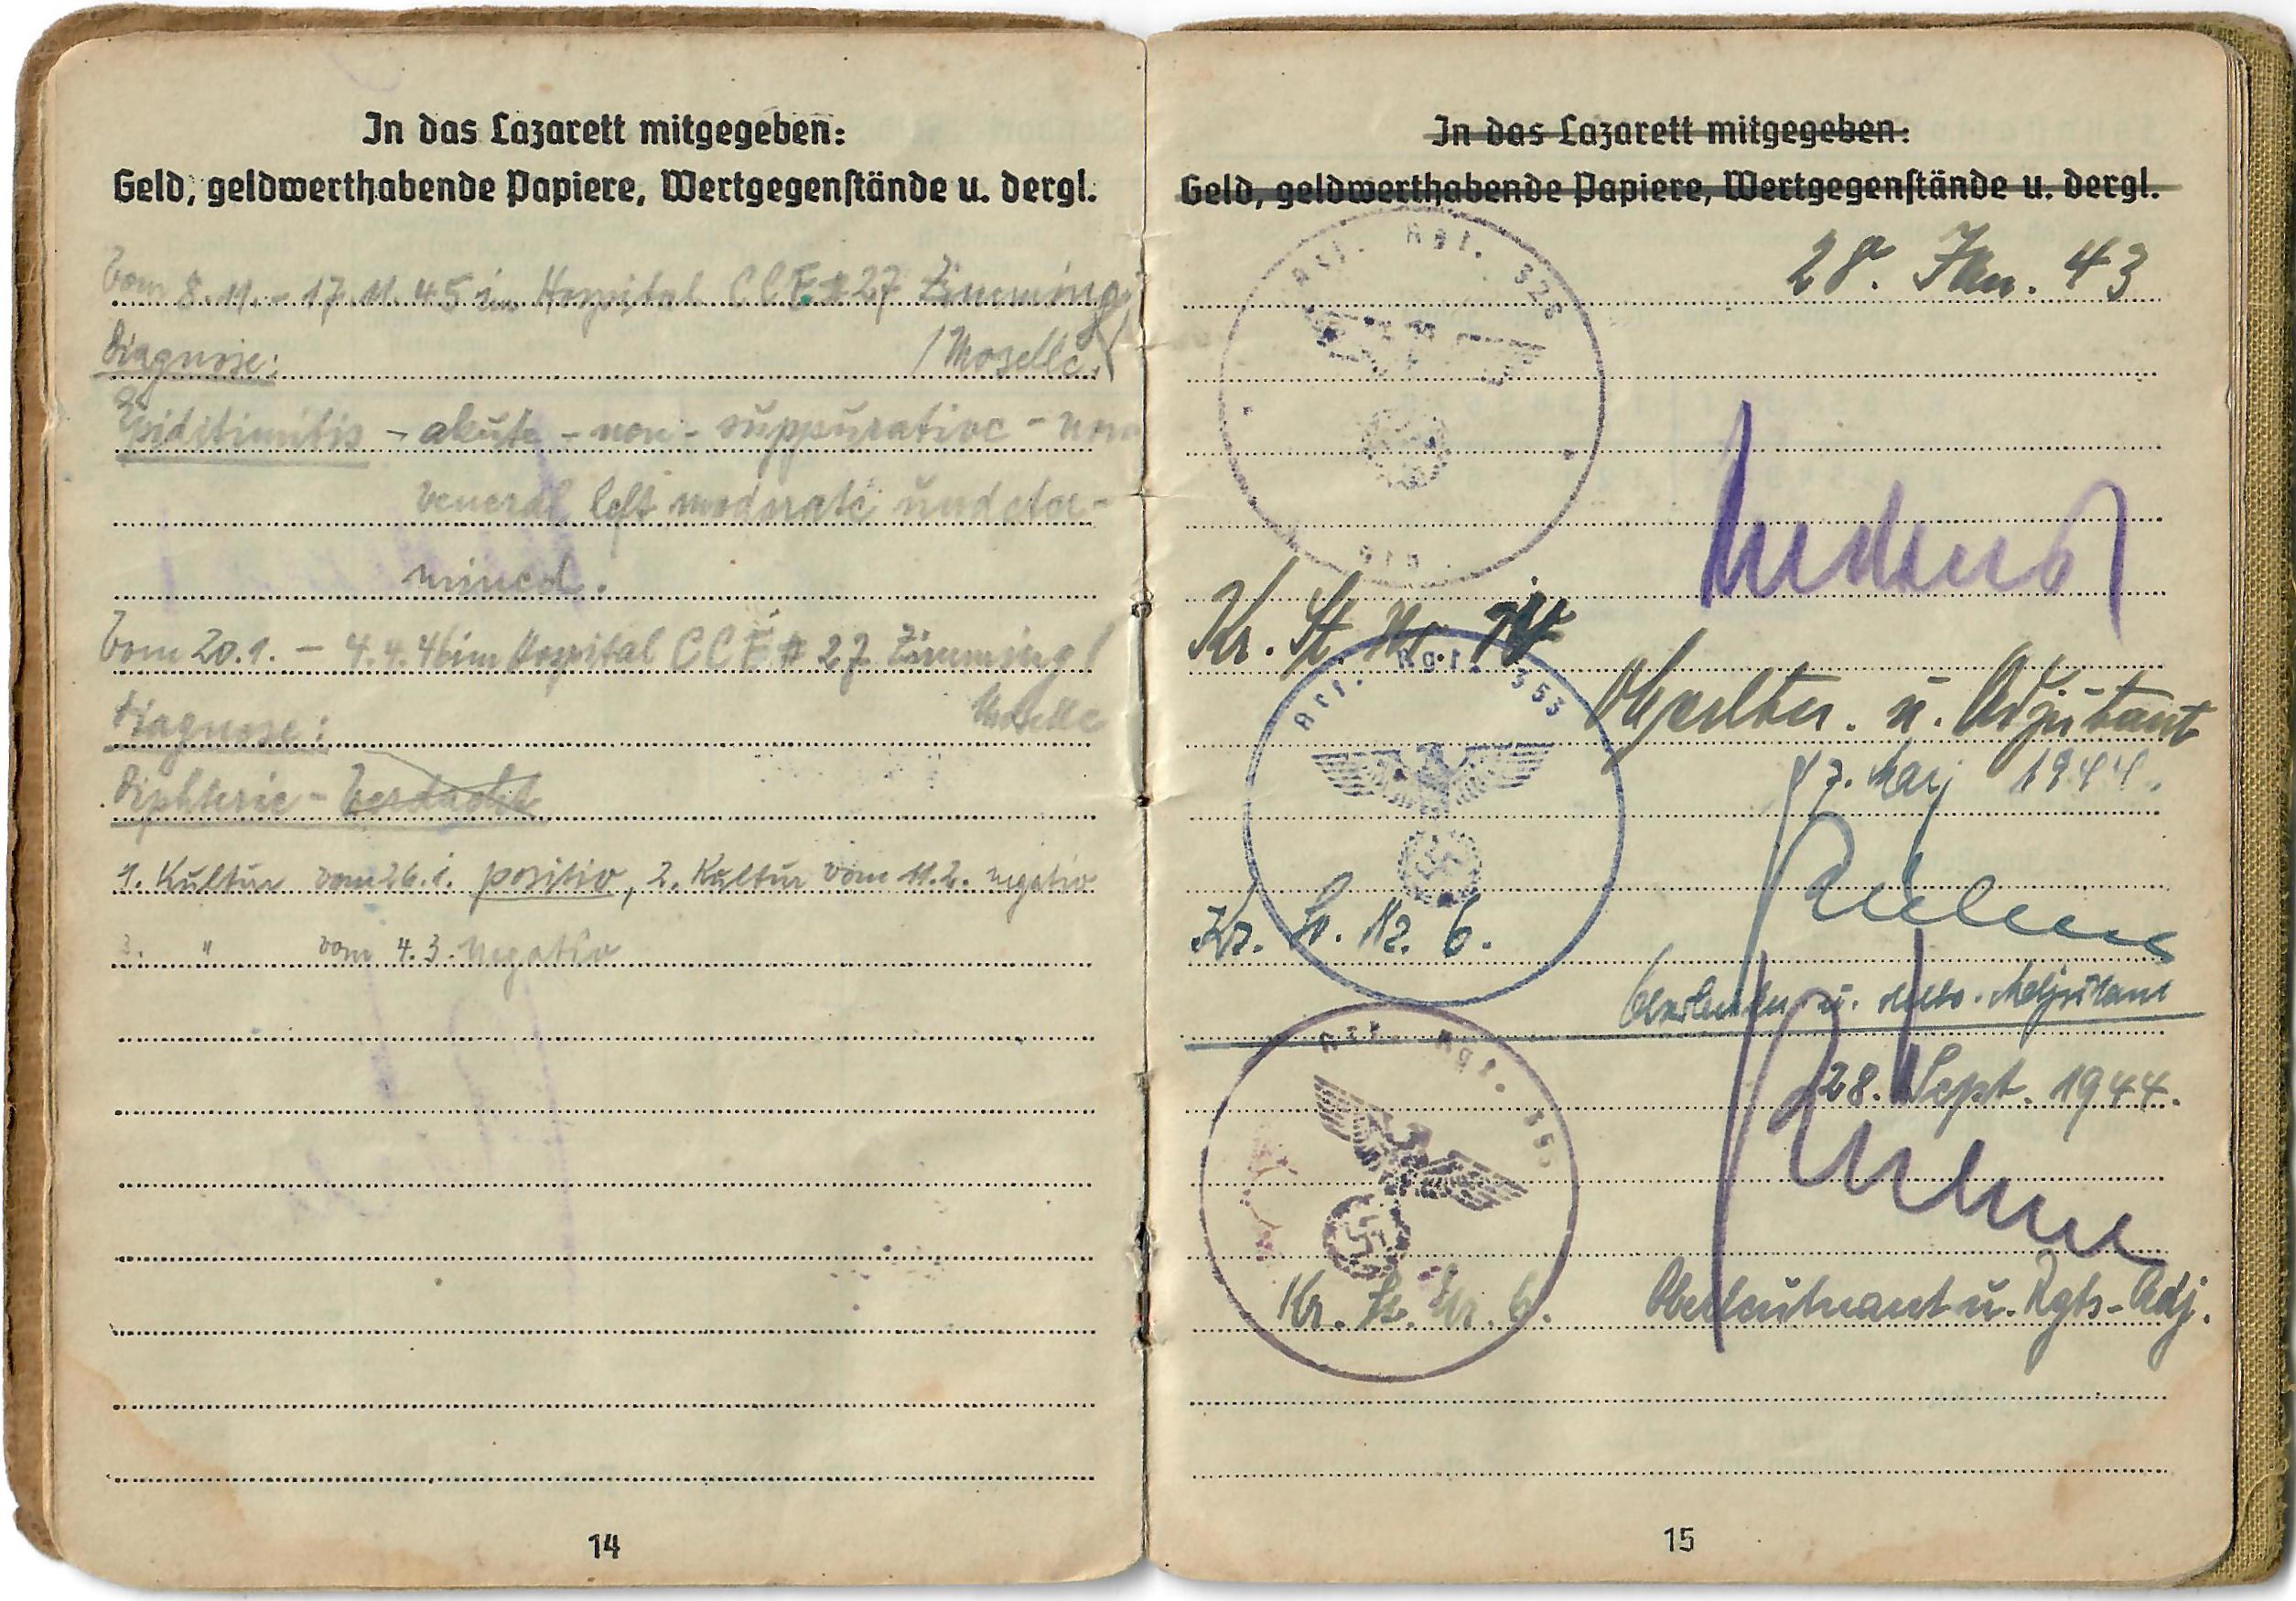 In das Lazarett mitgegeben:
Geld, geldwerthabende Papiere, Wertgegenstände u. dergl.
Vom 8.11. - 17.11.45 im Hospital CCE # 27 Zimming
Diagnose: /Moselle/
Epiditimitis - akute - non - suppurative - non
veneral left moderate undetor-
mined.
Vom 20.1. - 4.4.46 im Hospital CCE # 27 Zimming /
Diagnose: Moselle
Diphterie - Verdacht
1. Kultur vom 26.1. positiv, 2. Kultur vom 11.2. negativ
3. " vom 4.3. negativ
14
In das Lazarett mitgegeben:
Geld, geldwerthabende Papiere, Wertgegenstände u. dergl.
Art. Rgt. 328
28. Jan. 43
Kr. St. Nr.
Art. Rgt. 353
u. Adjutant
17. Mai 1944.
Kr. St. Nr. 6.
Oberleutn. u. Adjutant
Art. Rgt. 353
28. Sept. 1944.
Kr. St. Nr. 6. Oberleutnant u. Rgts-Adj.
15